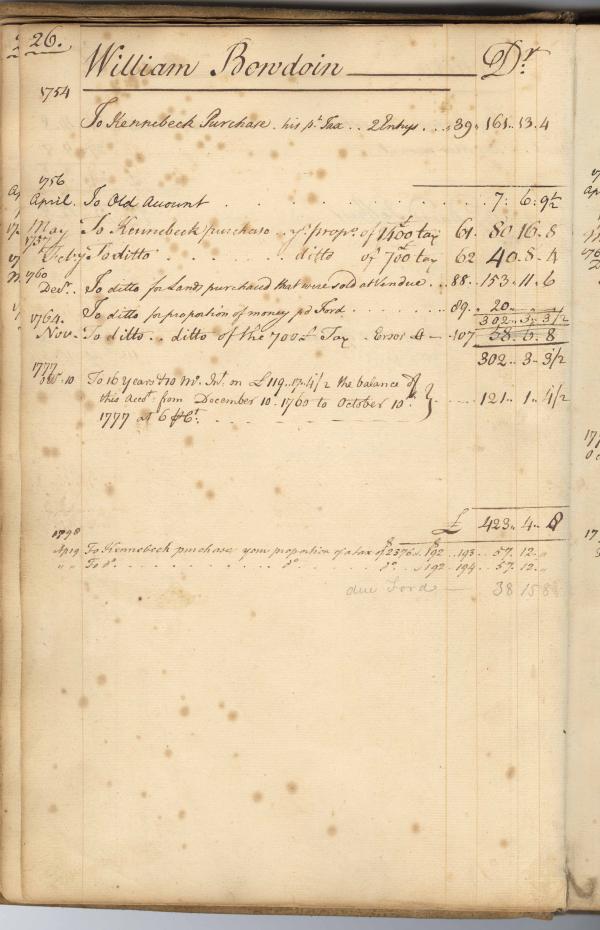 26.
William Bowdoin Dr.
1754
To Kennebeck Purchase. his pt. Tax .. 2 Entrys ... 39 .. 161 .. 13 .. 4
1756
April. To Old Account . . . 7 .. 6 .. 9 1/2
May To Kennebeck purchase .. yr. propn. of 1400 tax 61. 80 16 .. 8
1757
To ditto . . . ditto of 700 tax 62 40 .. 8 .. 4
1760
Decr. To ditto for Lands purchased that were sold at Vendue .. 88 .. 153 .. 11 .. 6
To ditto for proportion of money pd Ford . . . 89 .. 20 ..
302 .. 3 .. 3 1/2
1764.
Nov. To ditto .. ditto of the 700£ Tax . Error 107 58 .. 6 .. 8
302 .. 3 .. 3 1/2
1777
10 To 16 Years & 10 Mo. Int. on £119 .. 17 .. 4 1/2 the balance of
this Accot. from December 10. 1760 to October 10th.
1777 at 6 . . . 121 .. 1 .. 4 1/2
£ 423 .. 4 .. 8
1798
Ap 19 To Kennebeck purchase your proportion of a tax of $ 2376 .. $ 192 .. 193 .. 57 .. 12 ..
" " To do. . . . do. . . . do. .. 192 .. 194 .. 57 .. 12 ..
due Ford — 38 15 8